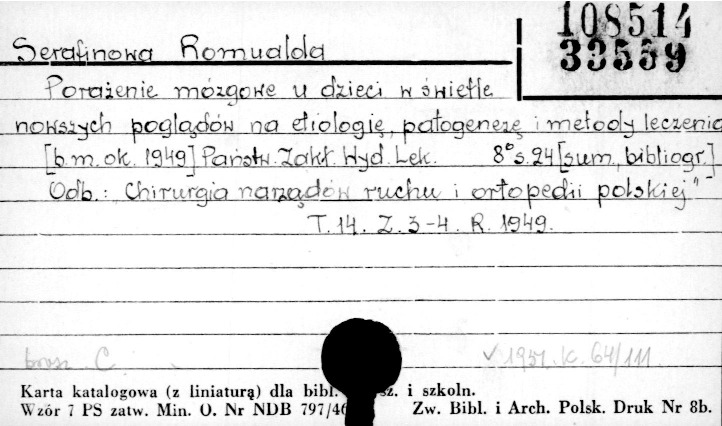 108514
33559
Serafinowa Romualda
Porażenie mózgowe u dzieci w świetle
nowszych poglądów na etiologię, patogenezę i metody leczenia
[b.m.ok. 1949] Państw. Zakł. Wyd. Lek. 8° s. 24 [sum., bibliogr.]
Odb.: Chirurgia narządów ruchu i ortopedii polskiej"
T. 14. Z. 3-4. R. 1949.
brosz. C.
1951. K. 64/111
Karta katalogowa (z liniaturą) dla bibl. i szkoln.
Wzór 7 PS zatw. Min. O. Nr NDB 797/46 Zw. Bibl. i Arch. Polsk. Druk Nr 8b.